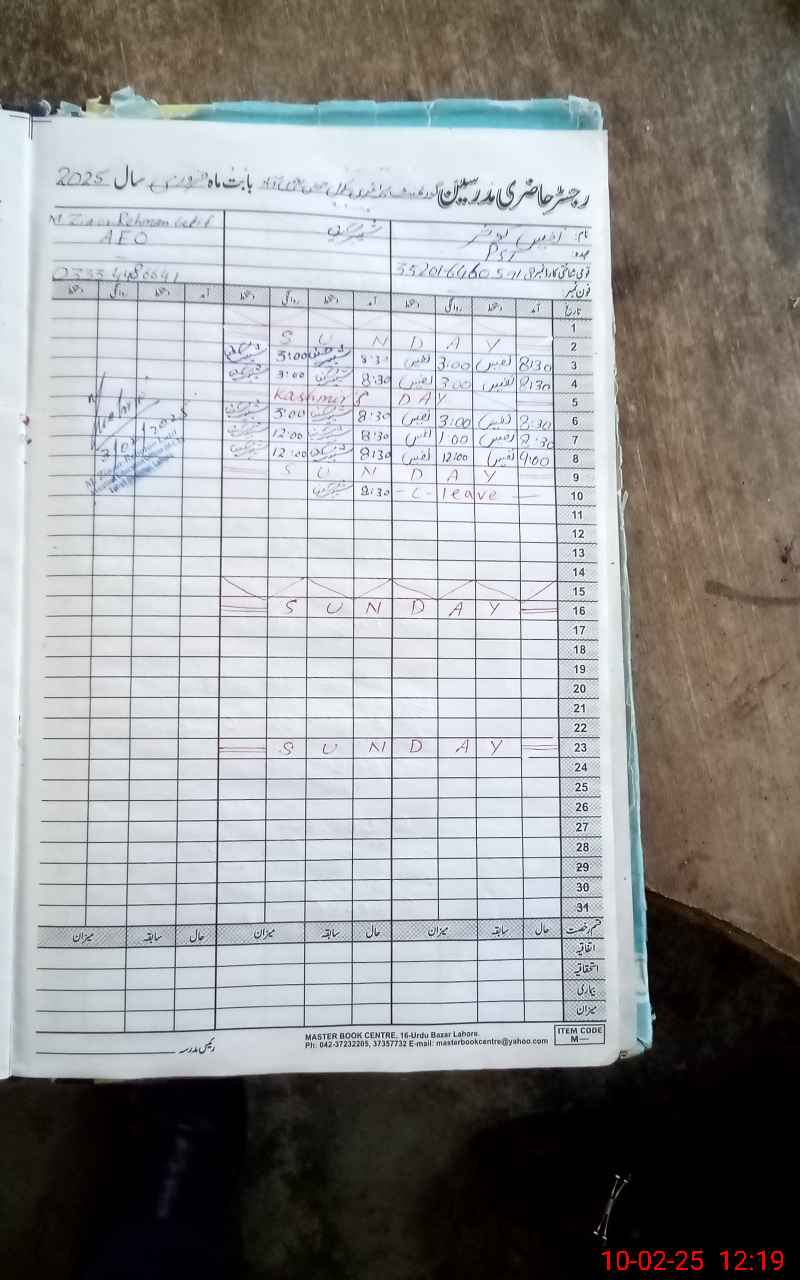 رجسٹر حاضری مدرسین بابت ماہ فروری سال 2025
نام: نفیس کوثر
M. Zia ur Rehman
عہدہ: PST
AEO
قومی شناختی کارڈ نمبر
فون نمبر
تاریخ آمد دستخط روانگی دستخط آمد دستخط روانگی دستخط آمد دستخط روانگی دستخط
1
S U N D A Y 2
3:00 8:30 نفیس 3:00 نفیس 8:30 3
3:00 8:30 نفیس 3:00 نفیس 8:30 4
Kashmir DAY 5
3:00 8:30 نفیس 3:00 نفیس 8:30 6
12:00 8:30 نفیس 1:00 نفیس 8:30 7
12:00 8:30 نفیس 12:00 نفیس 9:00 8
S U N D A Y 9
8:30 - C - leave - 10
11
12
13
14
15
S U N D A Y 16
17
18
19
20
21
22
S U N D A Y 23
24
25
26
27
28
29
30
31
قسم رخصت حال سابقہ میزان حال سابقہ میزان حال سابقہ میزان
اتفاقیہ
استحقاقیہ
بیماری
میزان
رئیس مدرسہ
MASTER BOOK CENTRE, 16-Urdu Bazar Lahore.
Ph: 042-37232205, 37357732 E-mail: masterbookcentre@yahoo.com
ITEM CODE
M—
10-02-25 12:19